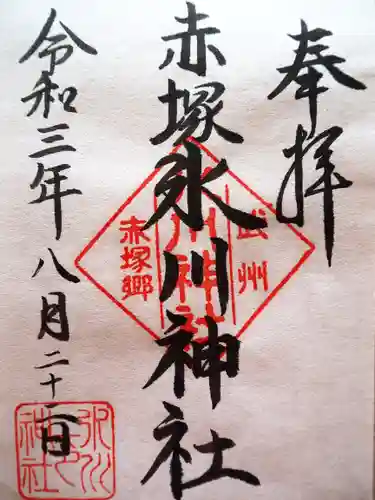 奉拝
赤塚氷川神社
令和三年八月二十二日
武州
氷川神社
赤塚郷